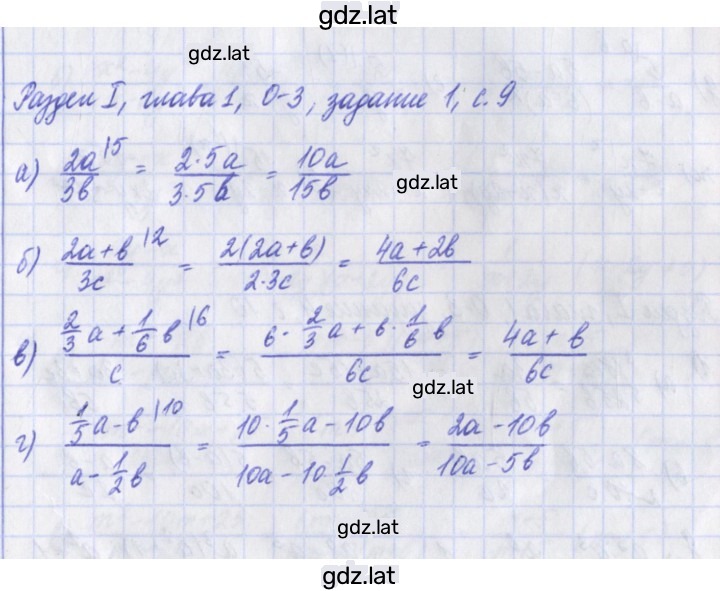 gdz.lat
gdz.lat
Раздел I, глава 1, О-3, задание 1, с. 9
а) 2a/3b |5 = 2·5a/3·5b = 10a/15b
gdz.lat
б) 2a+b/3c |2 = 2(2a+b)/2·3c = 4a+2b/6c
в) 2/3 a + 1/6 b/c |6 = 6·2/3 a + 6·1/6 b/6c = 4a+b/6c
gdz.lat
г) 1/5 a-b/a-1/2 b |10 = 10·1/5 a-10b/10a-10·1/2 b = 2a-10b/10a-5b
gdz.lat
gdz.lat